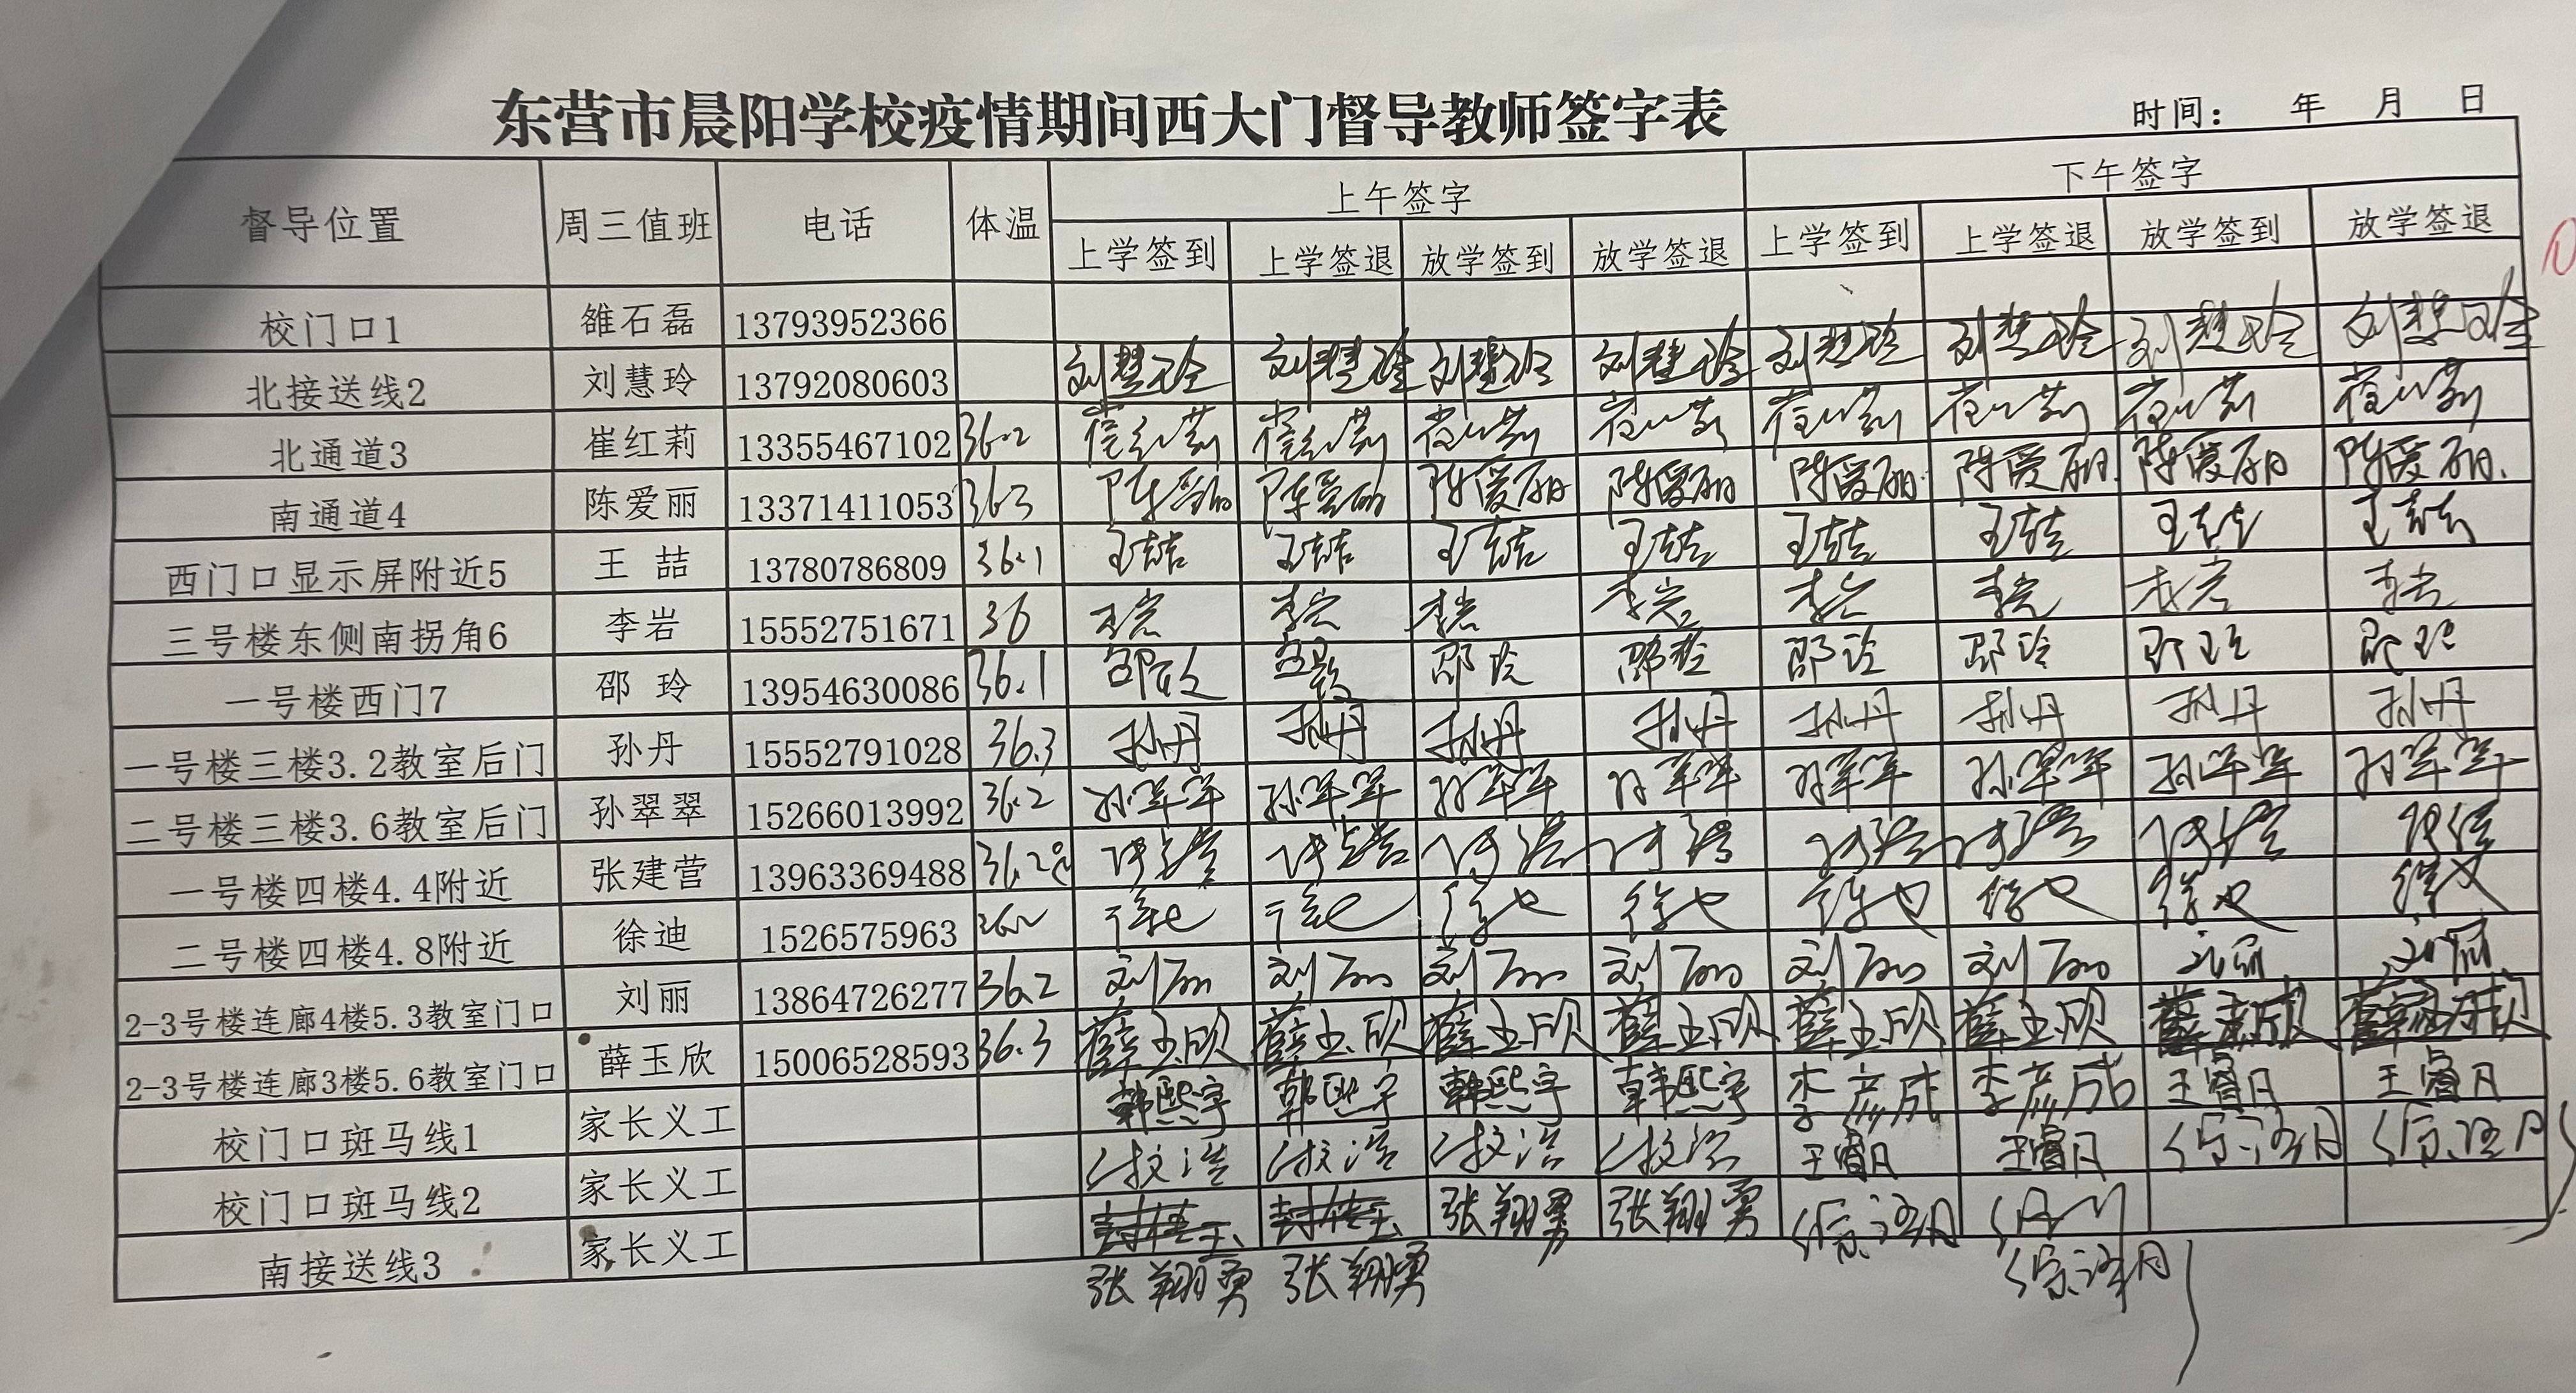 东营市晨阳学校疫情期间西大门督导教师签字表
时间: 年 月 日
督导位置 周三值班 电话 体温 上午签字 下午签字
上学签到 上学签退 放学签到 放学签退 上学签到 上学签退 放学签到 放学签退
校门口1 雒石磊 13793952366
北接送线2 刘慧玲 13792080603 刘慧玲 刘慧玲 刘慧玲 刘慧玲 刘慧玲 刘慧玲 刘慧玲 刘慧玲
北通道3 崔红莉 13355467102 36.2 崔红莉 崔红莉 崔红莉 崔红莉 崔红莉 崔红莉 崔红莉 崔红莉
南通道4 陈爱丽 13371411053 36.3 陈爱丽 陈爱丽 陈爱丽 陈爱丽 陈爱丽 陈爱丽 陈爱丽 陈爱丽
西门口显示屏附近5 王 喆 13780786809 36.1 王喆 王喆 王喆 王喆 王喆 王喆 王喆 王喆
三号楼东侧南拐角6 李岩 15552751671 36 李岩 李岩 李岩 李岩 李岩 李岩 李岩 李岩
一号楼西门7 邵 玲 13954630086 36.1 邵玲 邵玲 邵玲 邵玲 邵玲 邵玲 邵玲
一号楼三楼3.2教室后门 孙丹 15552791028 36.3 孙丹 孙丹 孙丹 孙丹 孙丹 孙丹 孙丹 孙丹
二号楼三楼3.6教室后门 孙翠翠 15266013992 36.2 孙翠翠 孙翠翠 孙翠翠 孙翠翠 孙翠翠 孙翠翠 孙翠翠 孙翠翠
一号楼四楼4.4附近 张建营 13963369488 36.2℃
二号楼四楼4.8附近 徐迪 1526575963 36.2 徐迪 徐迪 徐迪 徐迪 徐迪 徐迪 徐迪 徐迪
2-3号楼连廊4楼5.3教室门口 刘丽 13864726277 36.2 刘丽 刘丽 刘丽 刘丽 刘丽 刘丽 刘丽 刘丽
2-3号楼连廊3楼5.6教室门口 薛玉欣 15006528593 36.3 薛玉欣 薛玉欣 薛玉欣 薛玉欣 薛玉欣 薛玉欣 薛玉欣 薛玉欣
校门口斑马线1 家长义工 韩熙宇 韩熙宇 韩熙宇 韩熙宇 李彦成 李彦成 王睿月 王睿月
校门口斑马线2 家长义工 王睿月 王睿月
南接送线3 家长义工 张翔勇 张翔勇
张翔勇 张翔勇